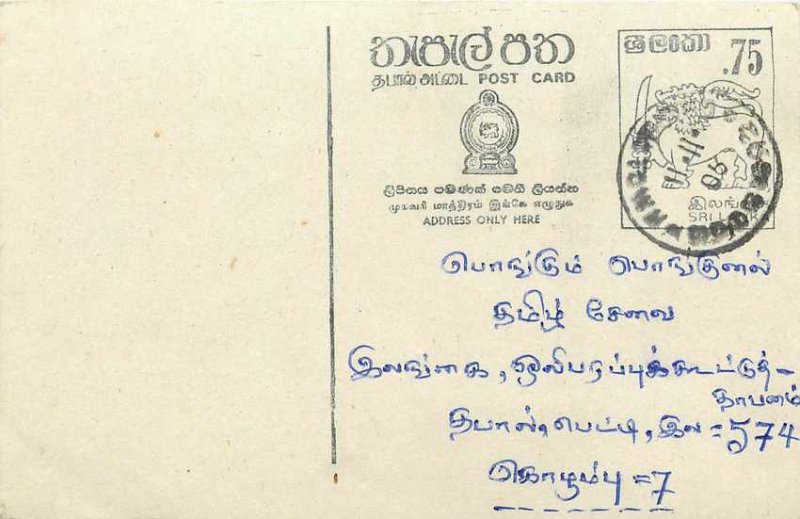 තැපැල් පත
தபால் அட்டை POST CARD
ලිපිනය පමණක් මෙහි ලියන්න
முகவரி மாத்திரம் இங்கே எழுதுக
ADDRESS ONLY HERE
ශ්‍රී ලංකා
.75
இலங்
SRI L
பொங்கும் பொங்குனல்
தமிழ் சேவை
இலங்கை, ஒலிபரப்புக்கூட்டுத்-
தாபனம்
தபால், பெட்டி, இல = 574
கொழும்பு = 7